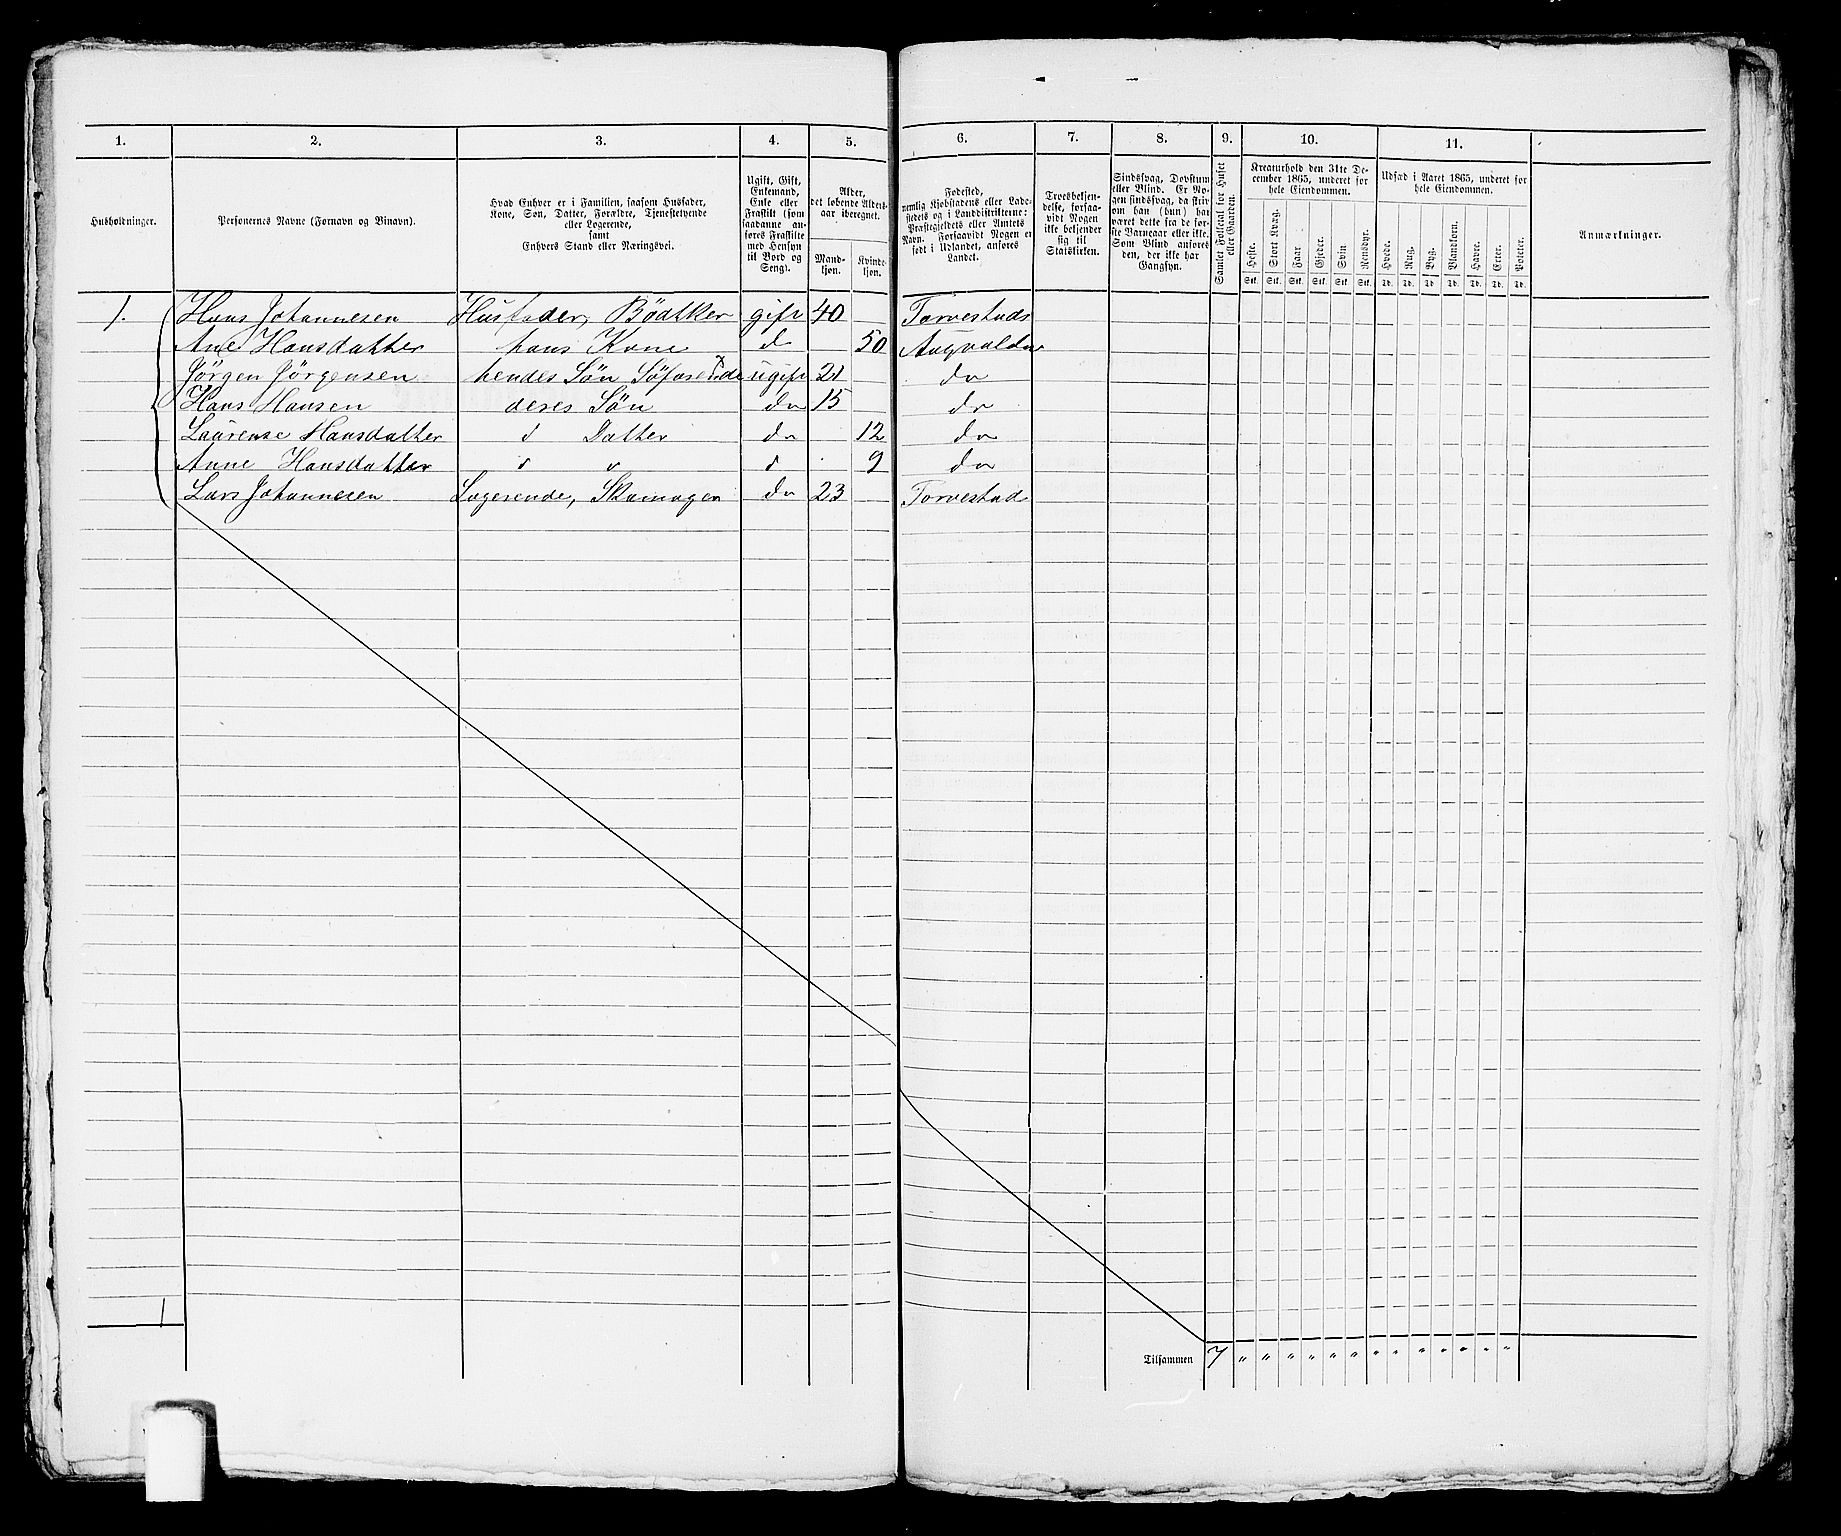 1. 2. 3. 4. 5. 6. 7. 8. 9. 10. 11.
Husholdninger.
Personernes Navne (Fornavn og Binavn).
Hvad Enhver er i Familien, saasom Husfader,
Kone, Søn, Datter, Forældre, Tjenestetyende
eller Logerende,
samt
Enhvers Stand eller Næringsvei.
Ugift, Gift,
Enkemand,
Enke eller
Fraskilt (som
saadanne an-
føres Fraskilte
med Hensyn
til Bord og
Seng).
Alder,
det løbende Alders-
aar iberegnet.
Mand-
kjøn.
Kvinde-
kjøn.
Fødested,
nemlig Kjøbstadens eller Lade-
stedets og i Landdistrikterne:
Præstegjeldets eller Amtets
Navn. Forsaavidt Nogen er
født i Udlandet, anføres
Landet.
Troesbekjen-
delse, forsaa-
vidt Nogen
ikke bekjender
sig til
Statskirken.
Sindssvag, Døvstum
eller Blind. Er No-
gen sindssvag, da skriv
om han (hun) har
været dette fra de før-
ste Barneaar eller ikke.
Som Blind anføres
den, der ikke har
Gangsyn.
Samlet Folketal for Huset
eller Gaarden.
Kreaturhold den 31te De-
cember 1865, underet for
hele Eiendommen.
Heste. Stort Kvæg. Faar. Gjeder. Svin. Rensdyr.
Stk. Stk. Stk. Stk. Stk. Stk.
Udsæd i Aaret 1865, underet for
hele Eiendommen.
Hvede. Rug. Byg. Blandkorn. Havre. Erter. Poteter.
Td. Td. Td. Td. Td. Td. Td.
Anmærkninger.
1. Hans Johannesen Husfader, Bödtker gift 40 Torvestads
Ane Hansdatter hans Kone do 50 Augvaldsn
Jörgen Jörgensen hendes Sön Söfarende x ugift 21 do
Hans Hansen deres Sön do 15 do
Laurense Hansdatter d Datter do 12 do
Anne Hansdatter d d d 9 do
Lars Johannesen Logerende, Skomager do 23 Torvestad
1
Tilsammen 7 " " " " " " " " " " " " "